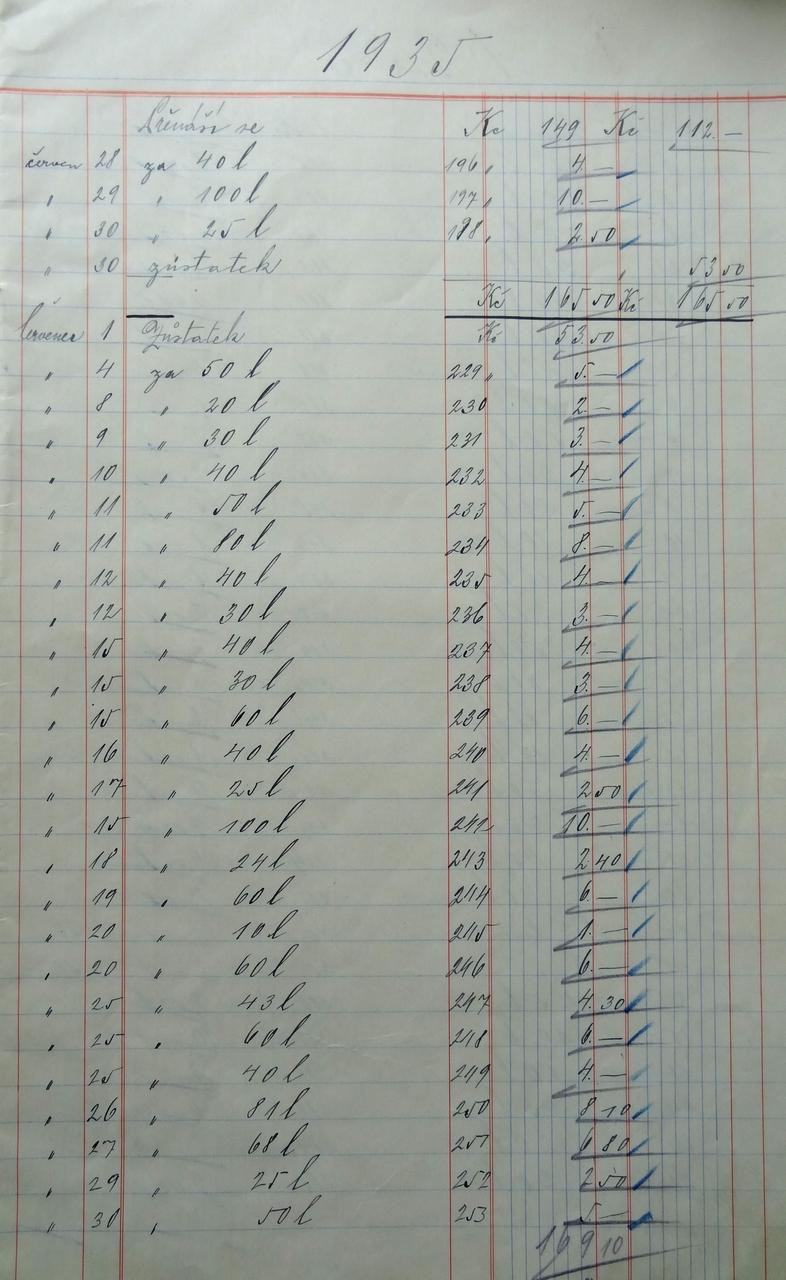 1935
Přenáší se Kč 149 Kč 112.—
červen 28 za 40 l 196 „ 4.—
„ 29 „ 100 l 197 „ 10.—
„ 30 „ 25 l 198 „ 2.50
„ 30 zůstatek 53 50
Kč 165 50 Kč 165 50
červenec 1 Zůstatek Kč 53.50
„ 4 za 50 l 229 „ 5.—
„ 8 „ 20 l 230 2.—
„ 9 „ 30 l 231 3.—
„ 10 „ 40 l 232 4.—
„ 11 „ 50 l 233 5.—
„ 11 „ 80 l 234 8.—
„ 12 „ 40 l 235 4.—
„ 12 „ 30 l 236 3.—
„ 15 „ 40 l 237 4.—
„ 15 „ 30 l 238 3.—
„ 15 „ 60 l 239 6.—
„ 16 „ 40 l 240 4.—
„ 17 „ 25 l 241 2 50
„ 15 „ 100 l 242 10.—
„ 18 „ 24 l 243 2 40
„ 19 „ 60 l 244 6.—
„ 20 „ 10 l 245 1.—
„ 20 „ 60 l 246 6.—
„ 25 „ 43 l 247 4.30
„ 25 „ 60 l 248 6.—
„ 25 „ 40 l 249 4.—
„ 26 „ 81 l 250 8 10
„ 27 „ 68 l 251 6 80
„ 29 „ 25 l 252 2 50
„ 30 „ 50 l 253 5 —
169 10